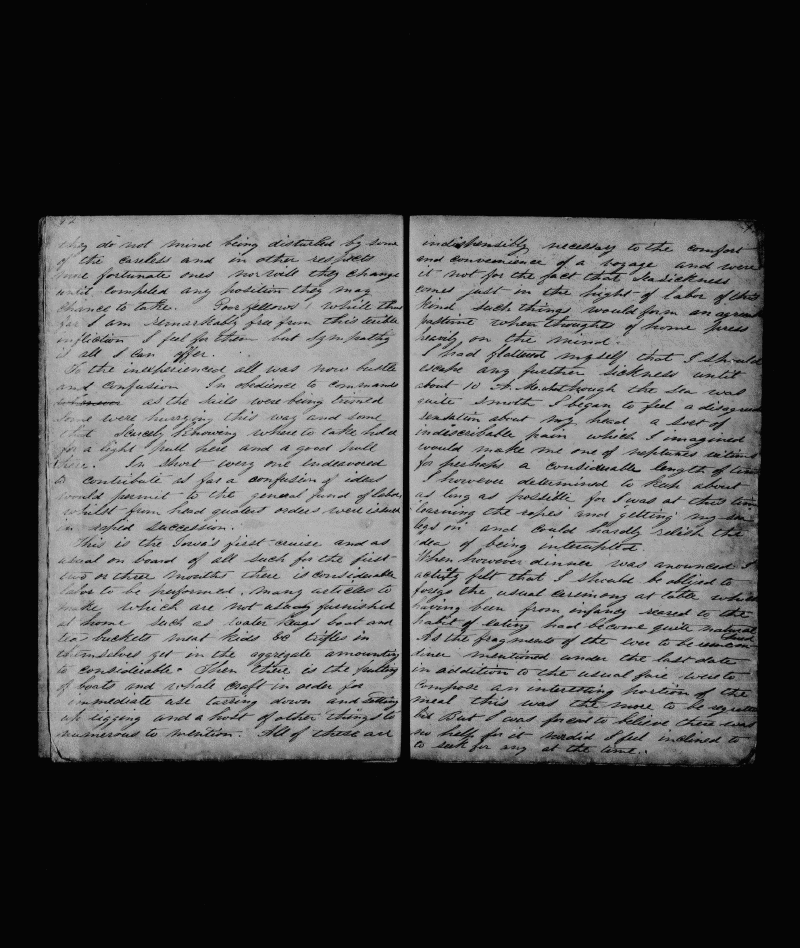 they do not mind being disturbed by some
of the careless and in other respects
more fortunate ones nor will they change
until compeled any position they may
chance to take. Poor fellows! while thus
far I am remarkably free from this terible
infliction I feel for them but sympathy
is all I can offer.
To the inexperienced all was now bustle
and confusion In obedience to commands
as the sails were being trimed
Some were hurrying this way and some
that Scarcely knowing where to take hold
for a light pull here and a good pull
there. In short every one endeavored
to contribute as far a confusion of ideas
would permit to the general fund of labor
whilst from head quaters orders were issued
in rapid succession.
This is the Iowa's first cruise and as
usual on board of all such for the first
two or three months there is considerable
labor to be performed. Many articles to
make which are not already furnished
at home such as water kegs boat and
buckets meat kids &c trifles in
themselves yet in the aggregate amounting
to considerable. Then there is the
of boats and whale craft in order for
immediate use tarring down and setting
up rigging and a host of other things to
numerous to mention. All of these are
indispensibly necessary to the comfort
and convenience of a voyage and were
it not for the fact that Seasickness
comes just in the hight of labor of this
kind such things would form an
pastime when thoughts of home press
heavy on the mind.
I had flattered myself that I should
escape any further sickness until
about 10 A.M. although the Sea was
quite smoth I began to feel a
sensation about my head a sort of
indiscribable pain which I imagined
would make me one of neptunes victims
for perhaps a considerable length of time
I however determined to keep about
as long as possible for I was at this time
learning the ropes and getting my sea
legs on and could hardly relish the
idea of being interupted
When however dinner was anounced I
actualy felt that I should be obliged to
forego the usual ceremony at table which
having been from infancy used to the
habit of eating had become quite natural
As the fragments of the to be
mentioned under the last date
in addition to the usual fare was to
compose an interesting portion of the
meal this was the more to be
But I was forced to believe there was
no help for it nor did I feel inclined to
to seek for any at the time.